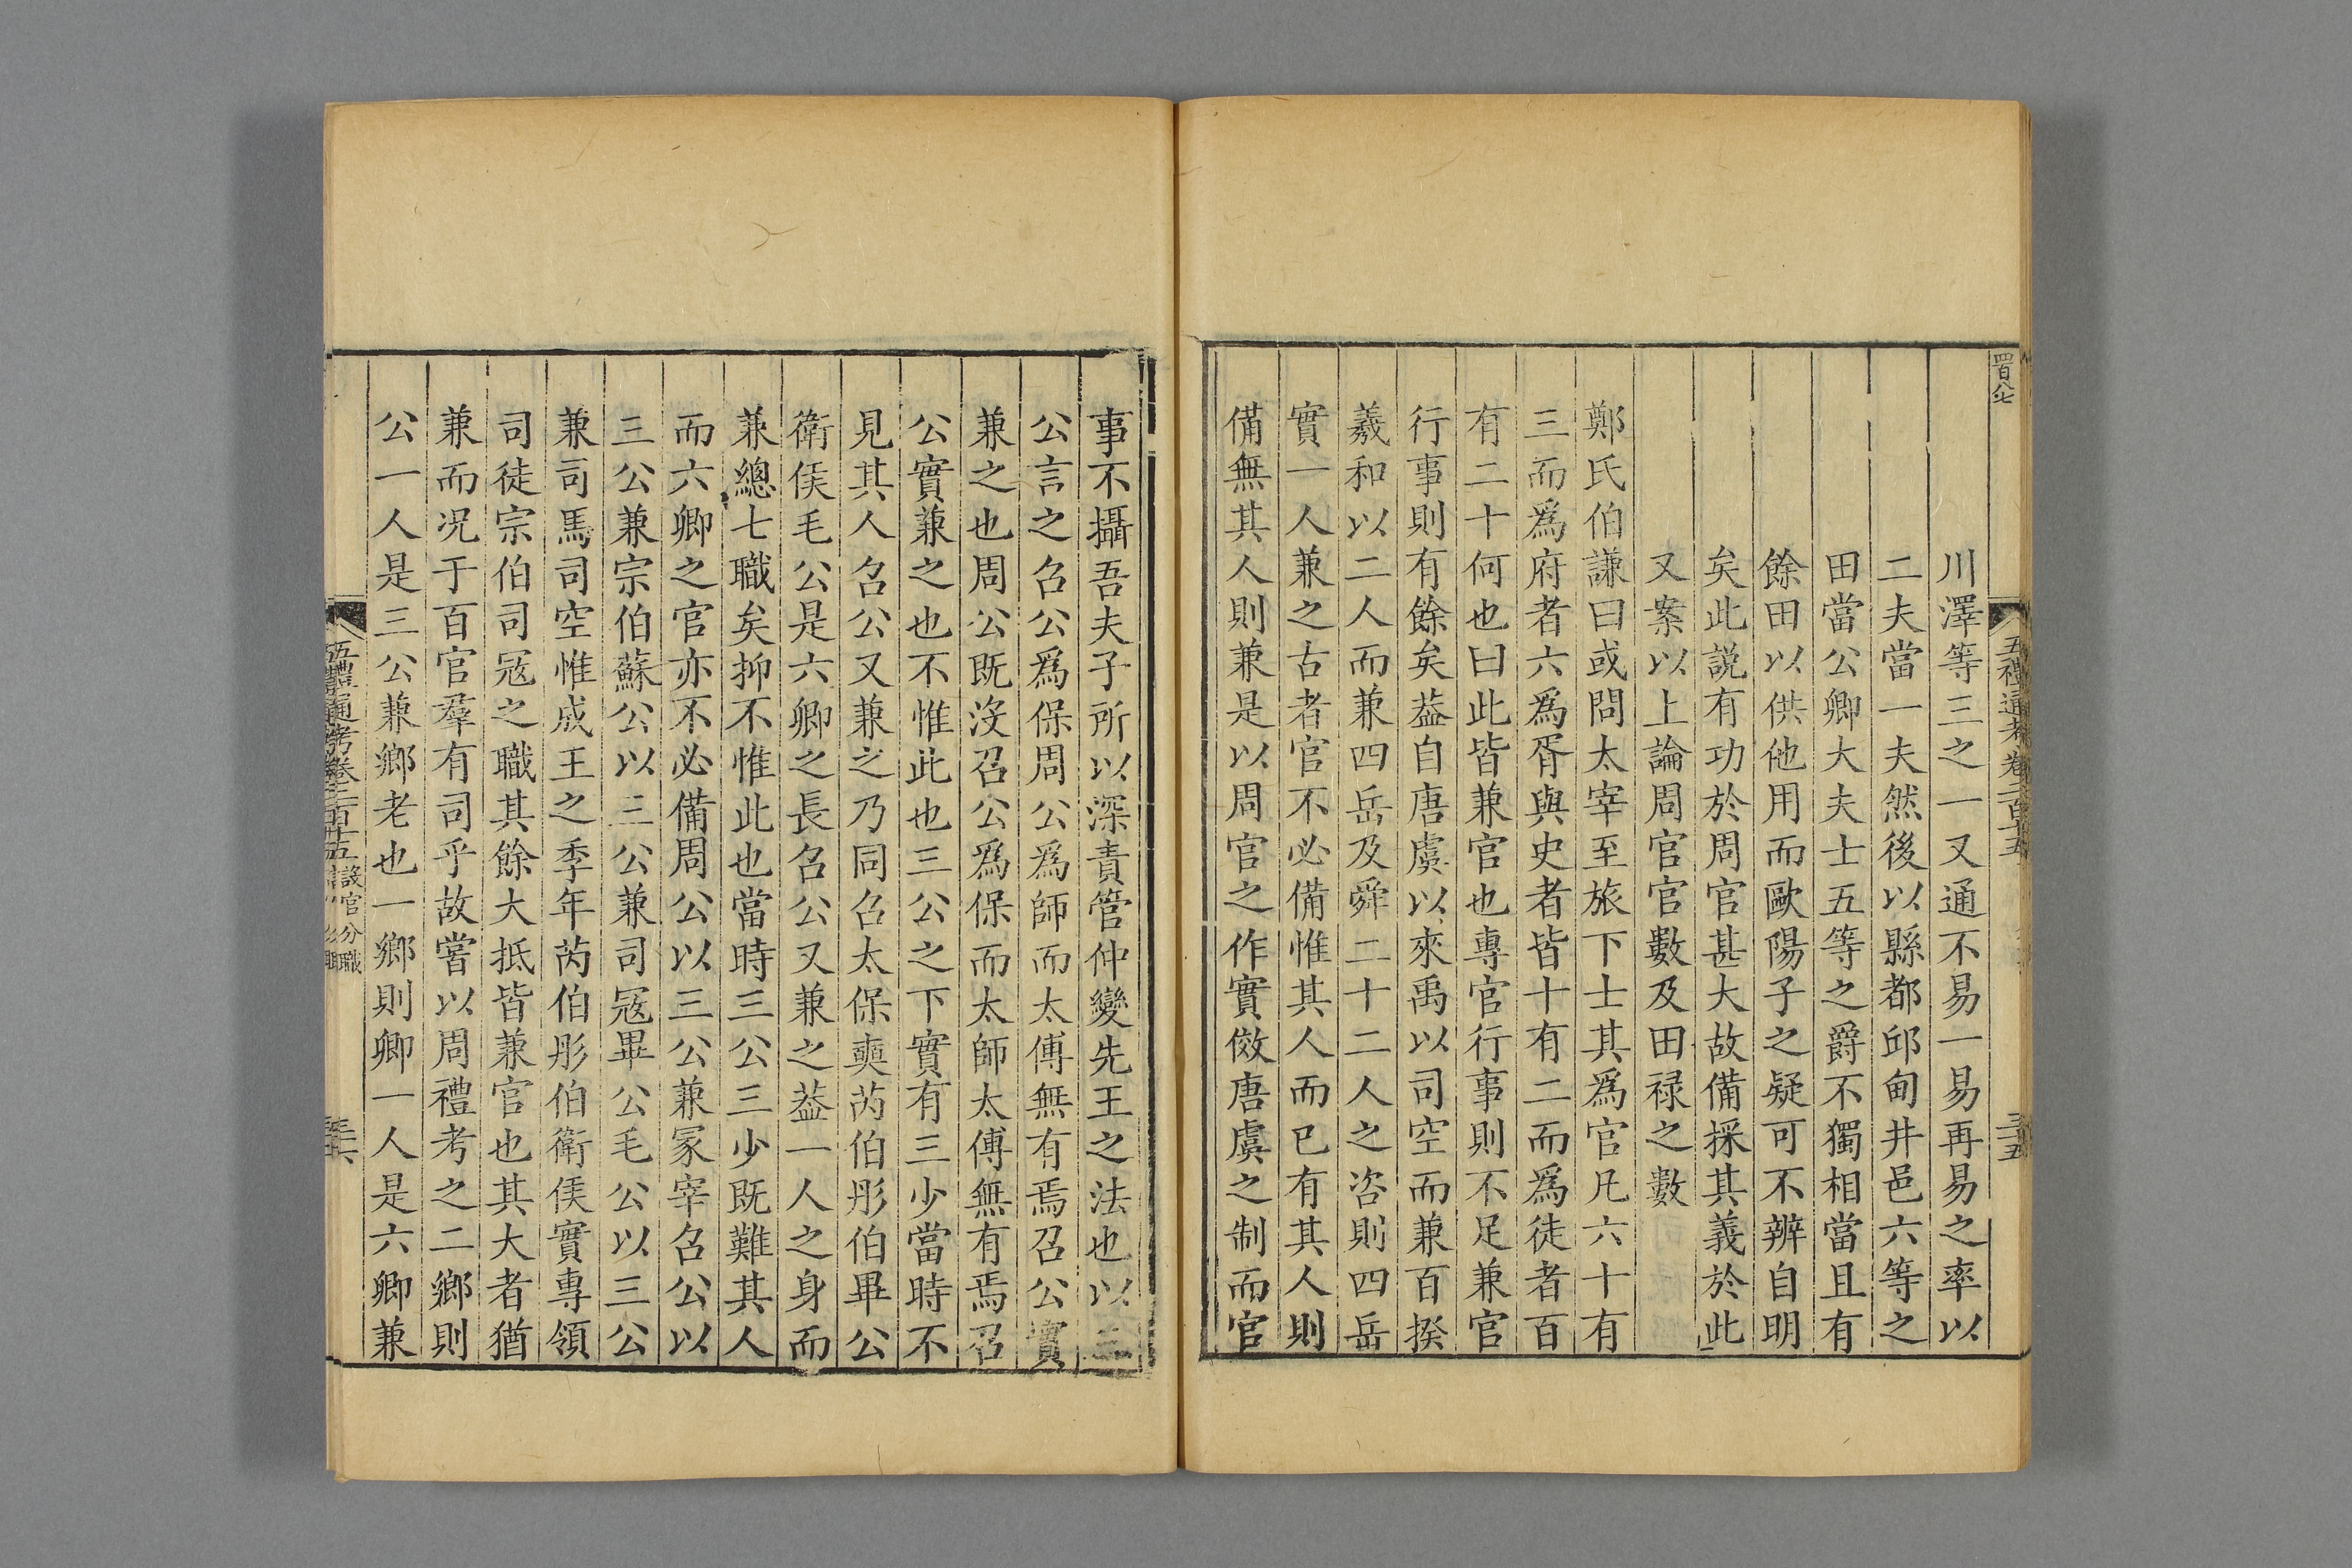 川澤等三之一又通不易一易再易之率以
二夫當一夫然後以縣都邱甸井邑六等之
田當公卿大夫士五等之爵不獨相當且有
餘田以供他用而歐陽子之疑可不辨自明
矣此説有功於周官甚大故備採其義於此
又案以上論周官官數及田禄之數
鄭氏伯謙曰或問太宰至旅下士其爲官凡六十有
三而爲府者六爲胥與史者皆十有二而爲徒者百
有二十何也曰此皆兼官也專官行事則不足兼官
行事則有餘矣葢自唐虞以來禹以司空而兼百揆
羲和以二人而兼四岳及舜二十二人之咨則四岳
實一人兼之古者官不必備惟其人而已有其人則
備無其人則兼是以周官之作實倣唐虞之制而官
事不攝吾夫子所以深責管仲變先王之法也以三
公言之召公爲保周公爲師而太傅無有焉召公實
兼之也周公既没召公爲保而太師太傅無有焉召
公實兼之也不惟此也三公之下實有三少當時不
見其人召公又兼之乃同召太保奭芮伯彤伯畢公
衛侯毛公是六卿之長召公又兼之葢一人之身而
兼總七職矣抑不惟此也當時三公三少既難其人
而六卿之官亦不必備周公以三公兼冡宰召公以
三公兼宗伯蘇公以三公兼司冦畢公毛公以三公
兼司馬司空惟成王之季年芮伯彤伯衛侯實專領
司徒宗伯司冦之職其餘大抵皆兼官也其大者猶
兼而况于百官羣有司乎故嘗以周禮考之二鄉則
公一人是三公兼鄉老也一鄉則卿一人是六卿兼
五禮通考卷二百十五 設官分職